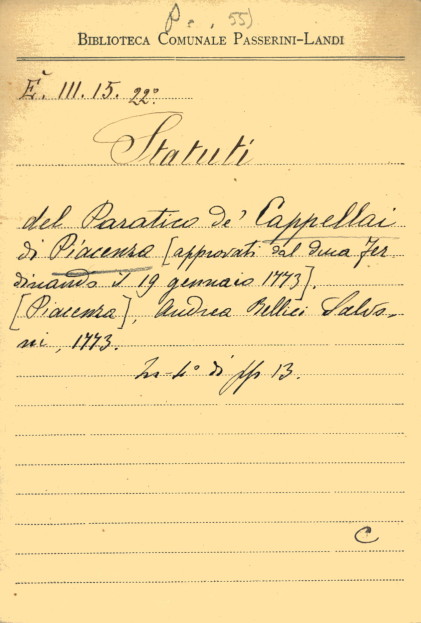 P
55)
BIBLIOTECA COMUNALE PASSERINI-LANDI
E. III. 15. 22°.
Statuti
del Paratico de' Cappellai
di Piacenza [approvati dal duca Fer
dinando il 19 gennaio 1773].
[Piacenza], Andrea Bellici Salvo-
ni, 1773.
In-4° di pp 13.
C